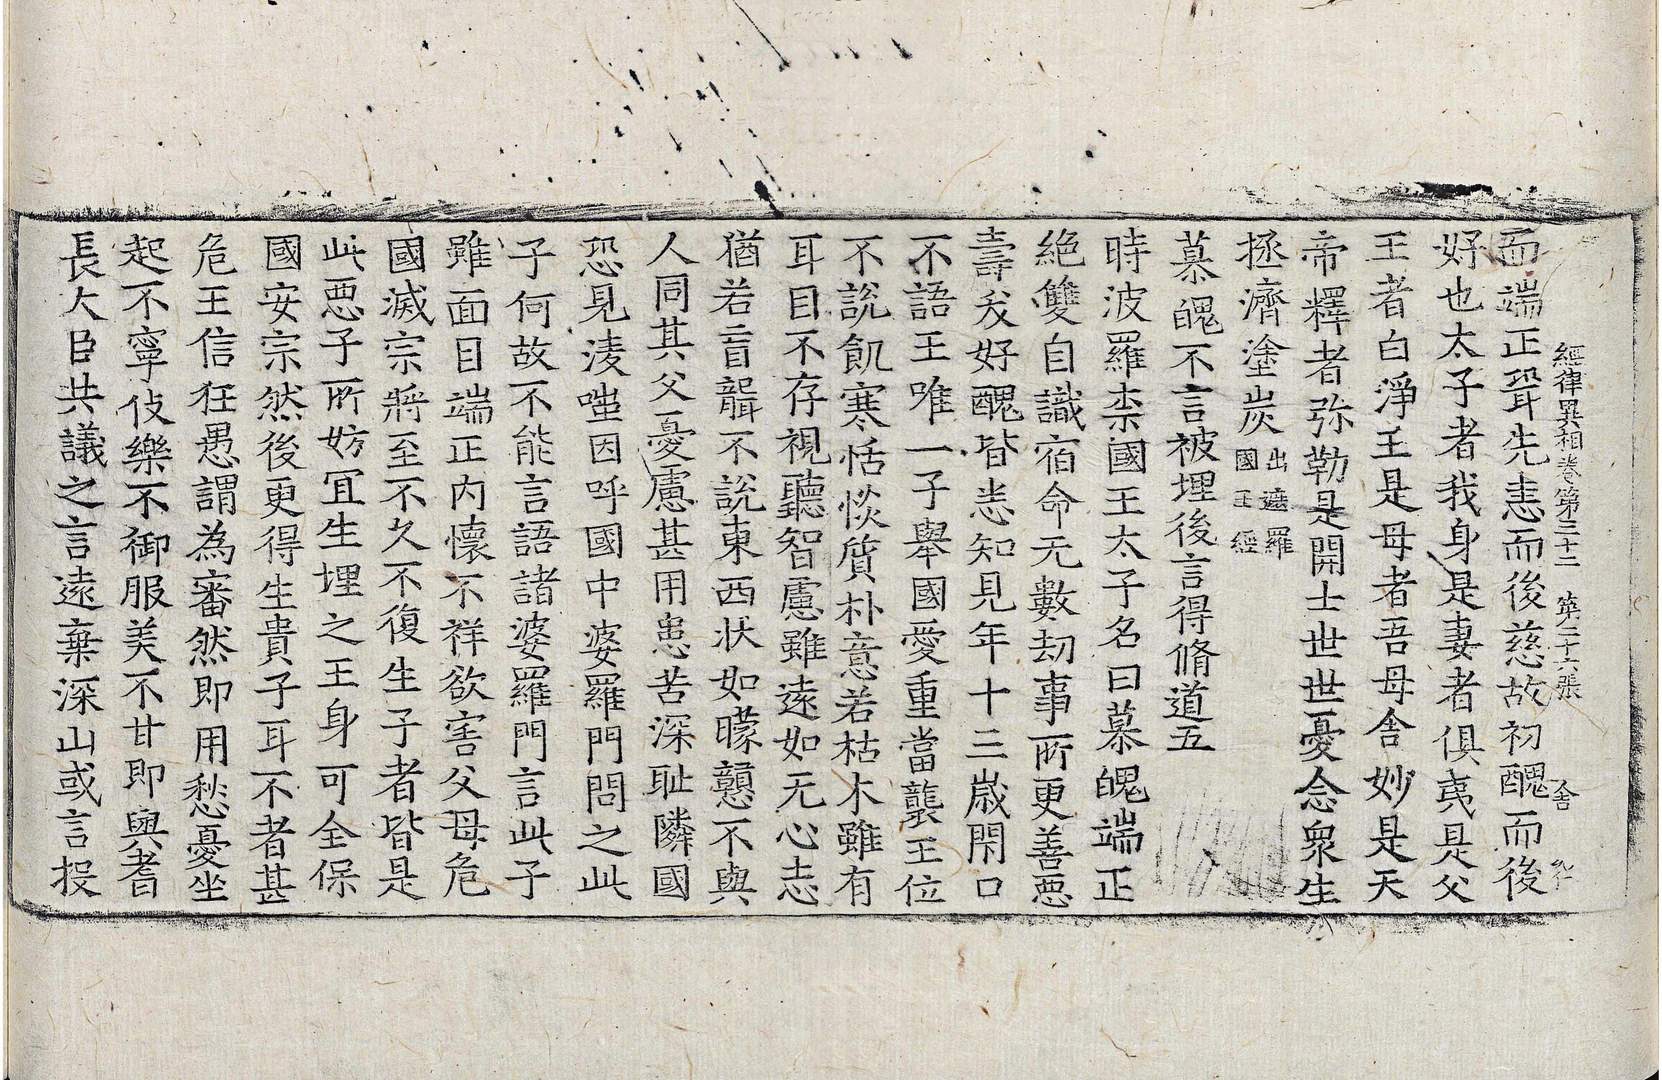 經律異相卷第三十二 第二十六張 舍
而端正聳先恚而後慈故初醜而後
好也太子者我身是妻者俱夷是父
王者白淨王是母者吾母舍妙是天
帝釋者弥勒是開士世世憂念衆生
拯濟塗炭 出遮羅
國王經
慕魄不言被埋後言得脩道五
時波羅柰國王太子名曰慕魄端正
絶雙自識宿命无數劫事所更善惡
壽夭好醜皆悉知見年十三歲閇口
不語王唯一子舉國愛重當襲王位
不說飢寒恬惔質朴意若枯木雖有
耳目不存視聽智慮雖遠如无心志
猶若盲聾不說東西狀如曚戇不與
人同其父憂慮甚用患苦深耻隣國
恐見淩嗤因呼國中婆羅門問之此
子何故不能言語諸婆羅門言此子
雖面目端正內懷不祥欲害父母危
國滅宗將至不久不復生子者皆是
此惡子所妨冝生埋之王身可全保
國安宗然後更得生貴子耳不者甚
危王信狂愚謂為審然即用愁憂坐
起不寧伎樂不御服美不甘即與耆
長大臣共議之言遠棄深山或言投